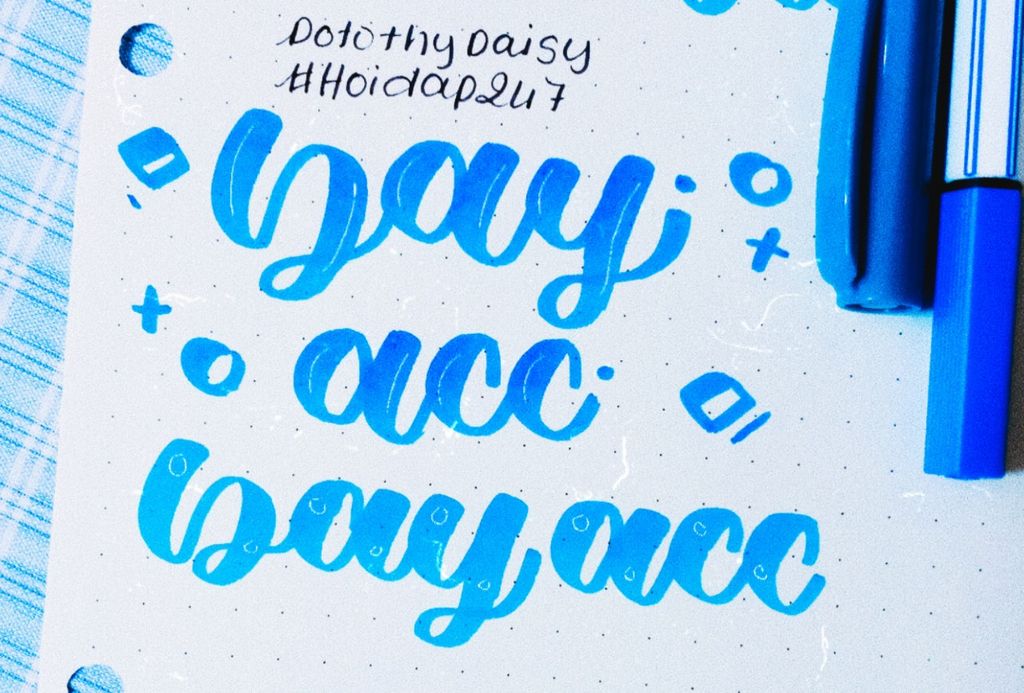 Dorothy Daisy
#Hoidap247
bay
acc
bay acc